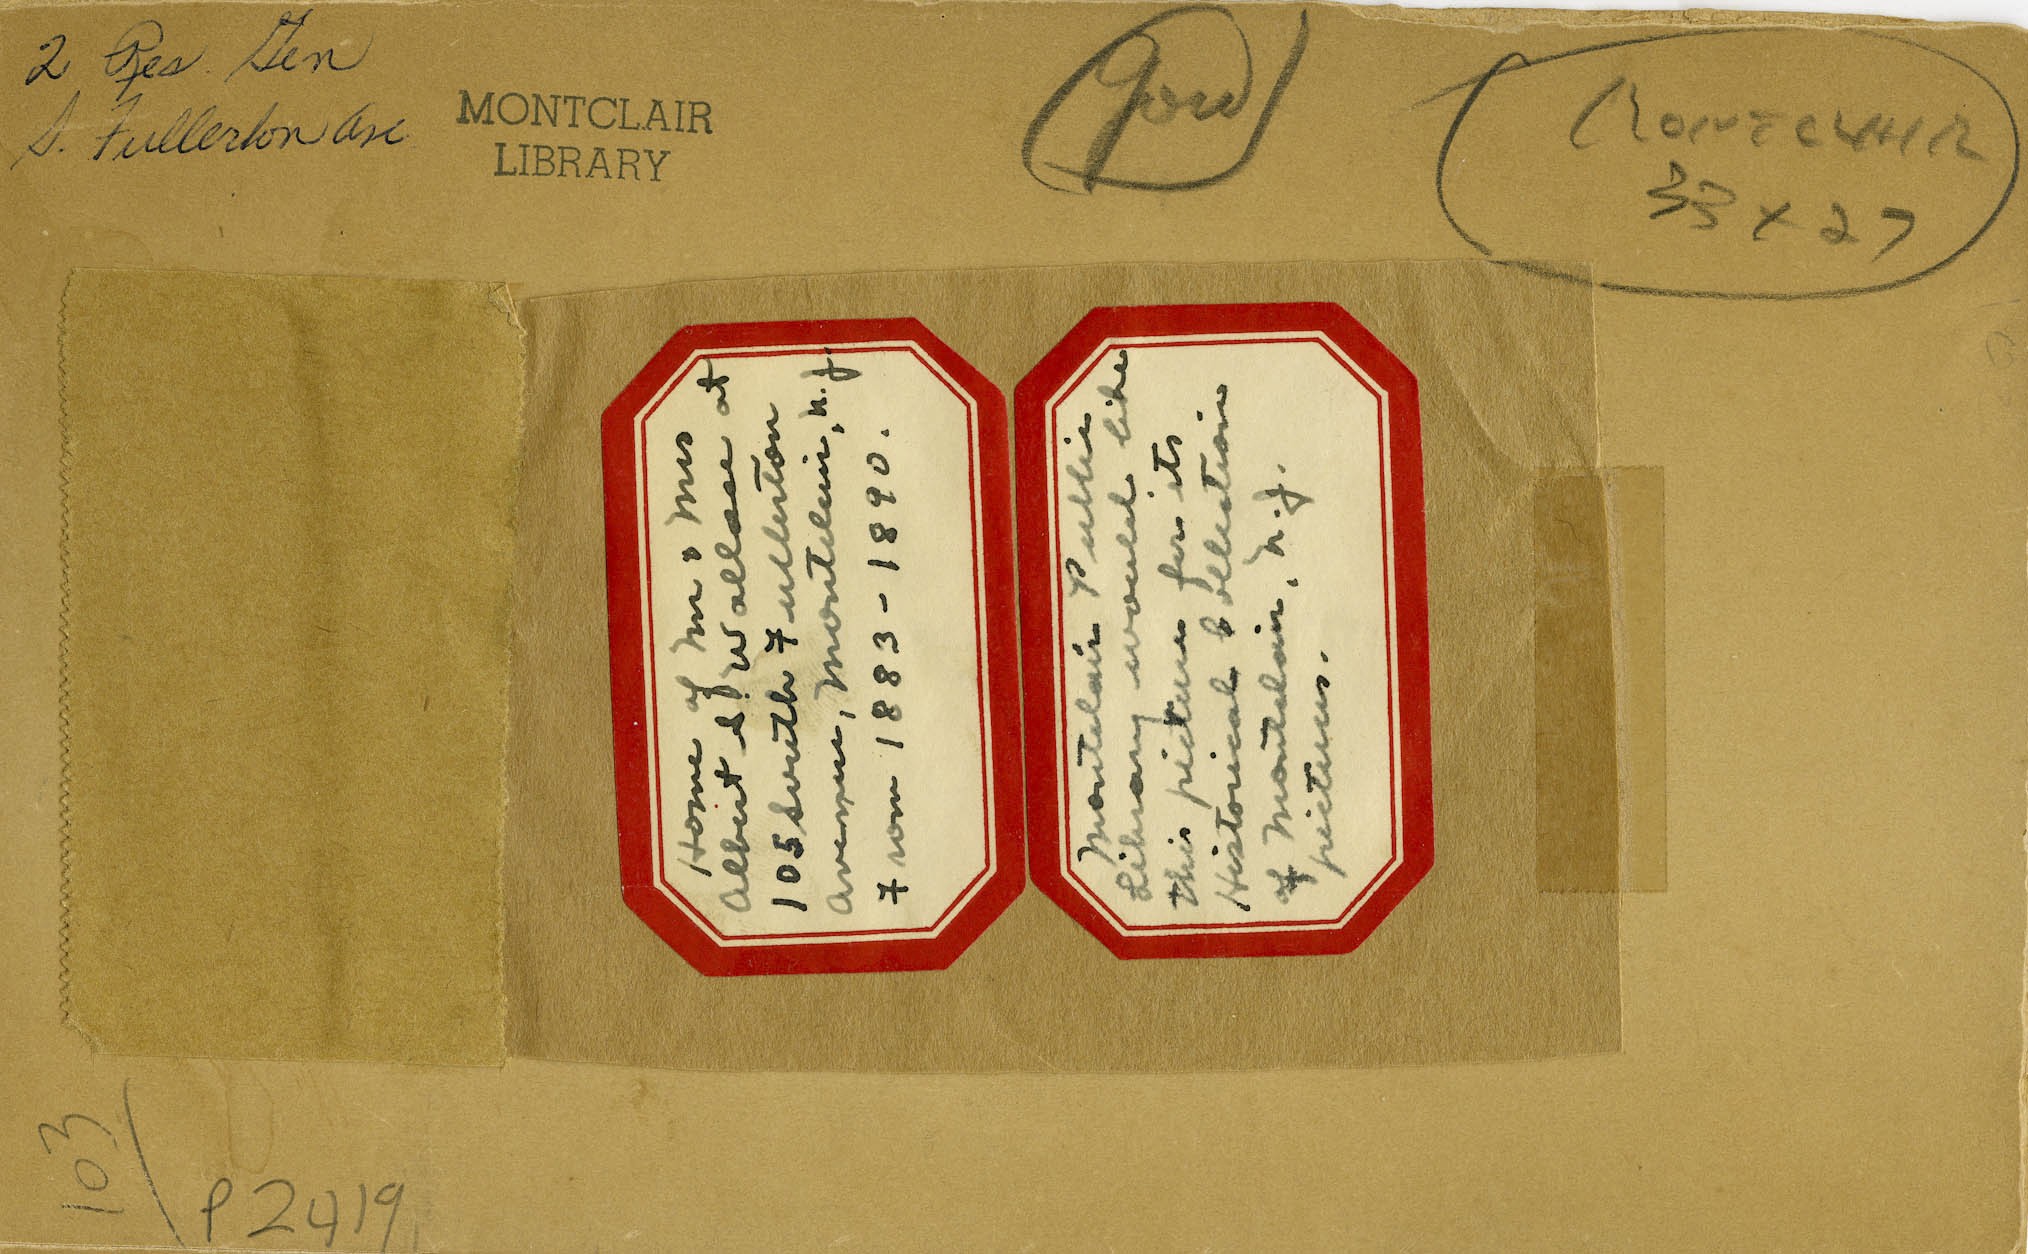 2 Res. Gen
S. Fullerton Ave
MONTCLAIR
LIBRARY
Gow
MONTCLAIR
33 x 27
Home of Mr. & Mrs
Albert L. Wallace at
105 South Fullerton
Avenue, Montclair, N.J.
From 1883-1890.
Montclair Public
Library would like
this picture for its
Historical Collection
of Montclair, N.J.
pictures.
103
P2419